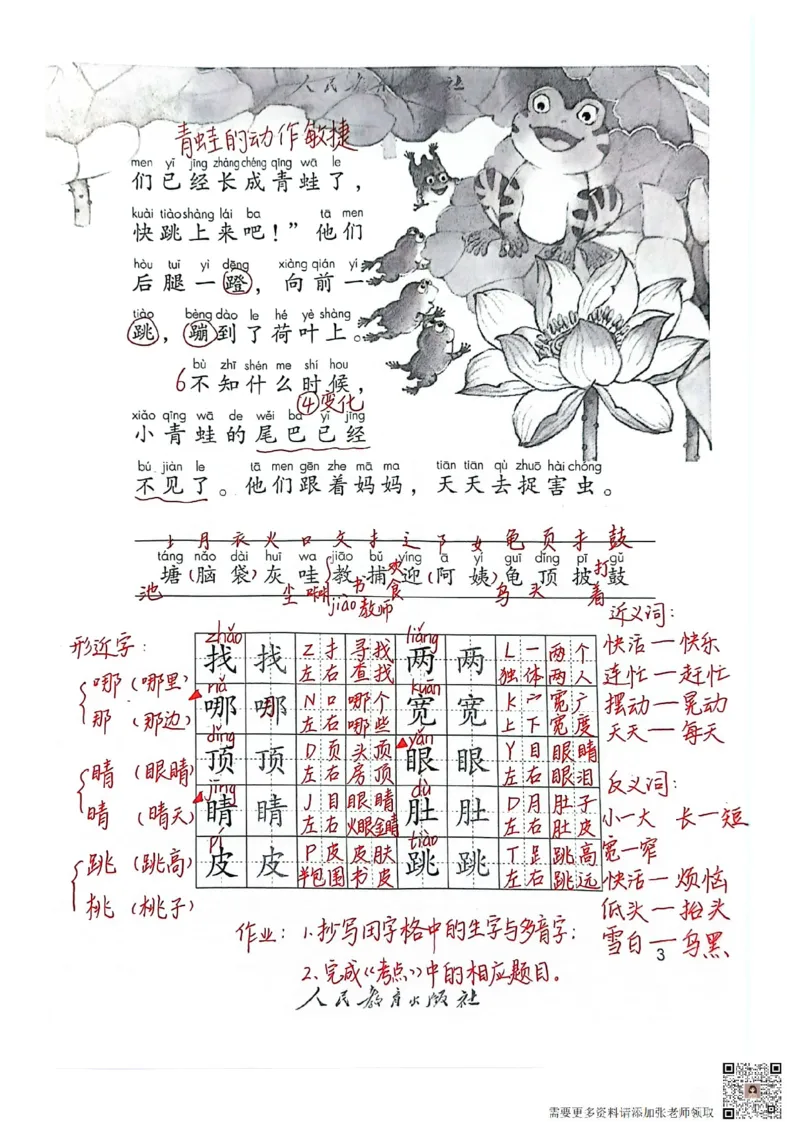 人民教育出版社
青蛙的动作敏捷
men yǐ jīng zhǎng chéng qīng wā le
们已经长成青蛙了，
kuài tiào shàng lái ba tā men
快跳上来吧！”他们
hòu tuǐ yì dēng xiàng qián yí
后腿一蹬，向前一
tiào bèng dào le hé yè shàng
跳，蹦到了荷叶上。
bù zhī shén me shí hou
6不知什么时候，
④变化
xiǎo qīng wā de wěi ba yǐ jīng
小青蛙的尾巴已经
bú jiàn le tā men gēn zhe mā ma tiān tiān qù zhuō hài chóng
不见了。他们跟着妈妈，天天去捉害虫。
土 月 衣 火 口 攵 扌 辶 阝 女 龟 页 扌 鼓
táng nǎo dài huī wa jiāo bǔ yíng ā yí guī dǐng pī gǔ
塘(脑袋)灰哇教捕迎(阿姨)龟顶披鼓
池 尘 书 食 欢 乌 头 着 打
jiào 教师
形近字：
哪（哪里）
那（那边）
睛（眼睛）
晴（晴天）
跳（跳高）
桃（桃子）
zhǎo liǎng
找 找 Z 扌 寻找 两 两 L 一 两个
左右 查找 独体 两人
nǎ kuān
哪 哪 N 口 哪个 宽 宽 K 宀 宽广
左右 哪些 上下 宽度
dǐng yǎn
顶 顶 D 页 头顶 眼 眼 Y 目 眼睛
左右 房顶 左右 眼泪
jīng dù
睛 睛 J 目 眼睛 肚 肚 D 月 肚子
左右 火眼金睛 左右 肚皮
pí tiào
皮 皮 P 皮 皮肤 跳 跳 T 足 跳高
半包围 书皮 左右 跳远
近义词：
快活一快乐
连忙一赶忙
摆动一晃动
天天一每天
反义词：
小一大 长一短
宽一窄
快活一烦恼
低头一抬头
雪白一乌黑
作业：1.抄写田字格中的生字与多音字；
2.完成《考点》中的相应题目。
3
人民教育出版社
需要更多资料请添加张老师领取